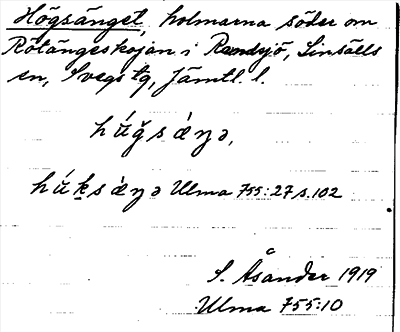 Högsänget, holmarna söder om
Rötängeskojan i Randsjö, Linsälls
sn, Svegs tg, Jämtl. l.
hú̄g̊sǽŋə,
hú́ḵsǽŋə Ulma 755:27 s. 102
S. Åsander 1919
Ulma 755:10